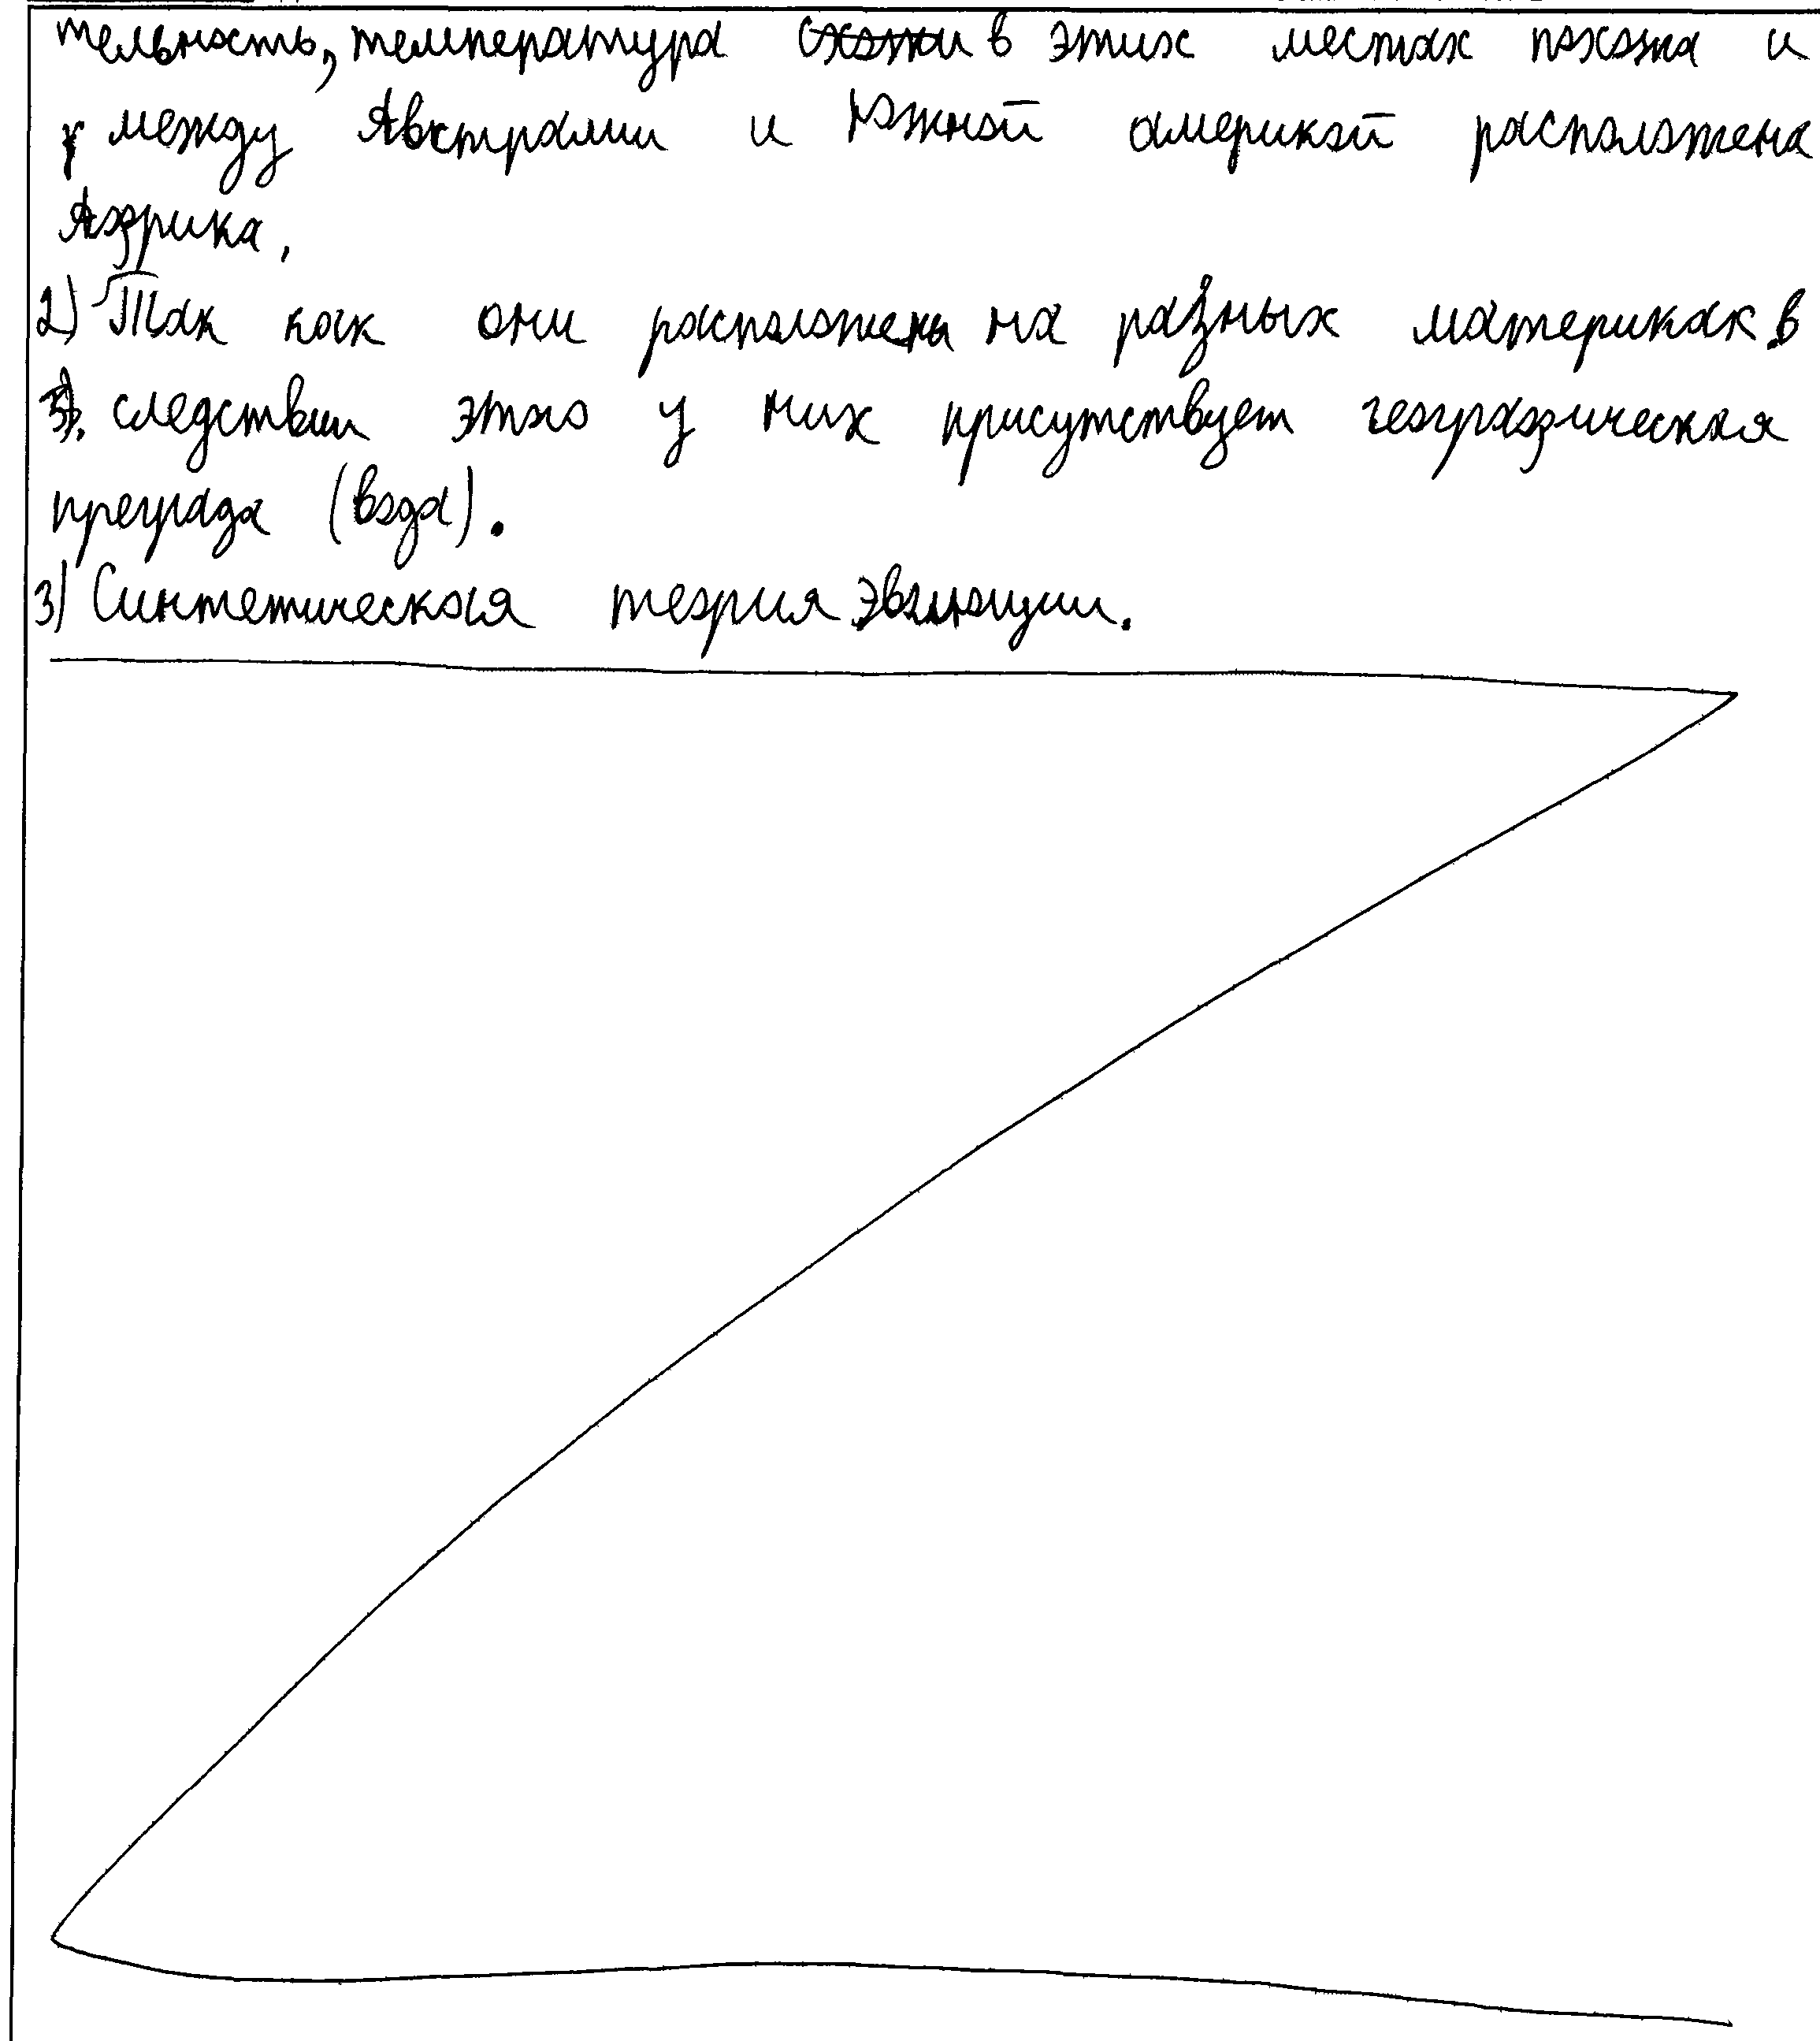 тельность, температура схожи в этих местах похожа и
между Австралии и Южной америкой расположена
Африка.
2) Так как они расположены на разных материках в
следствии этого у них присутствует географическая
преграда (вода).
3) Синтетическая теория эволюции.